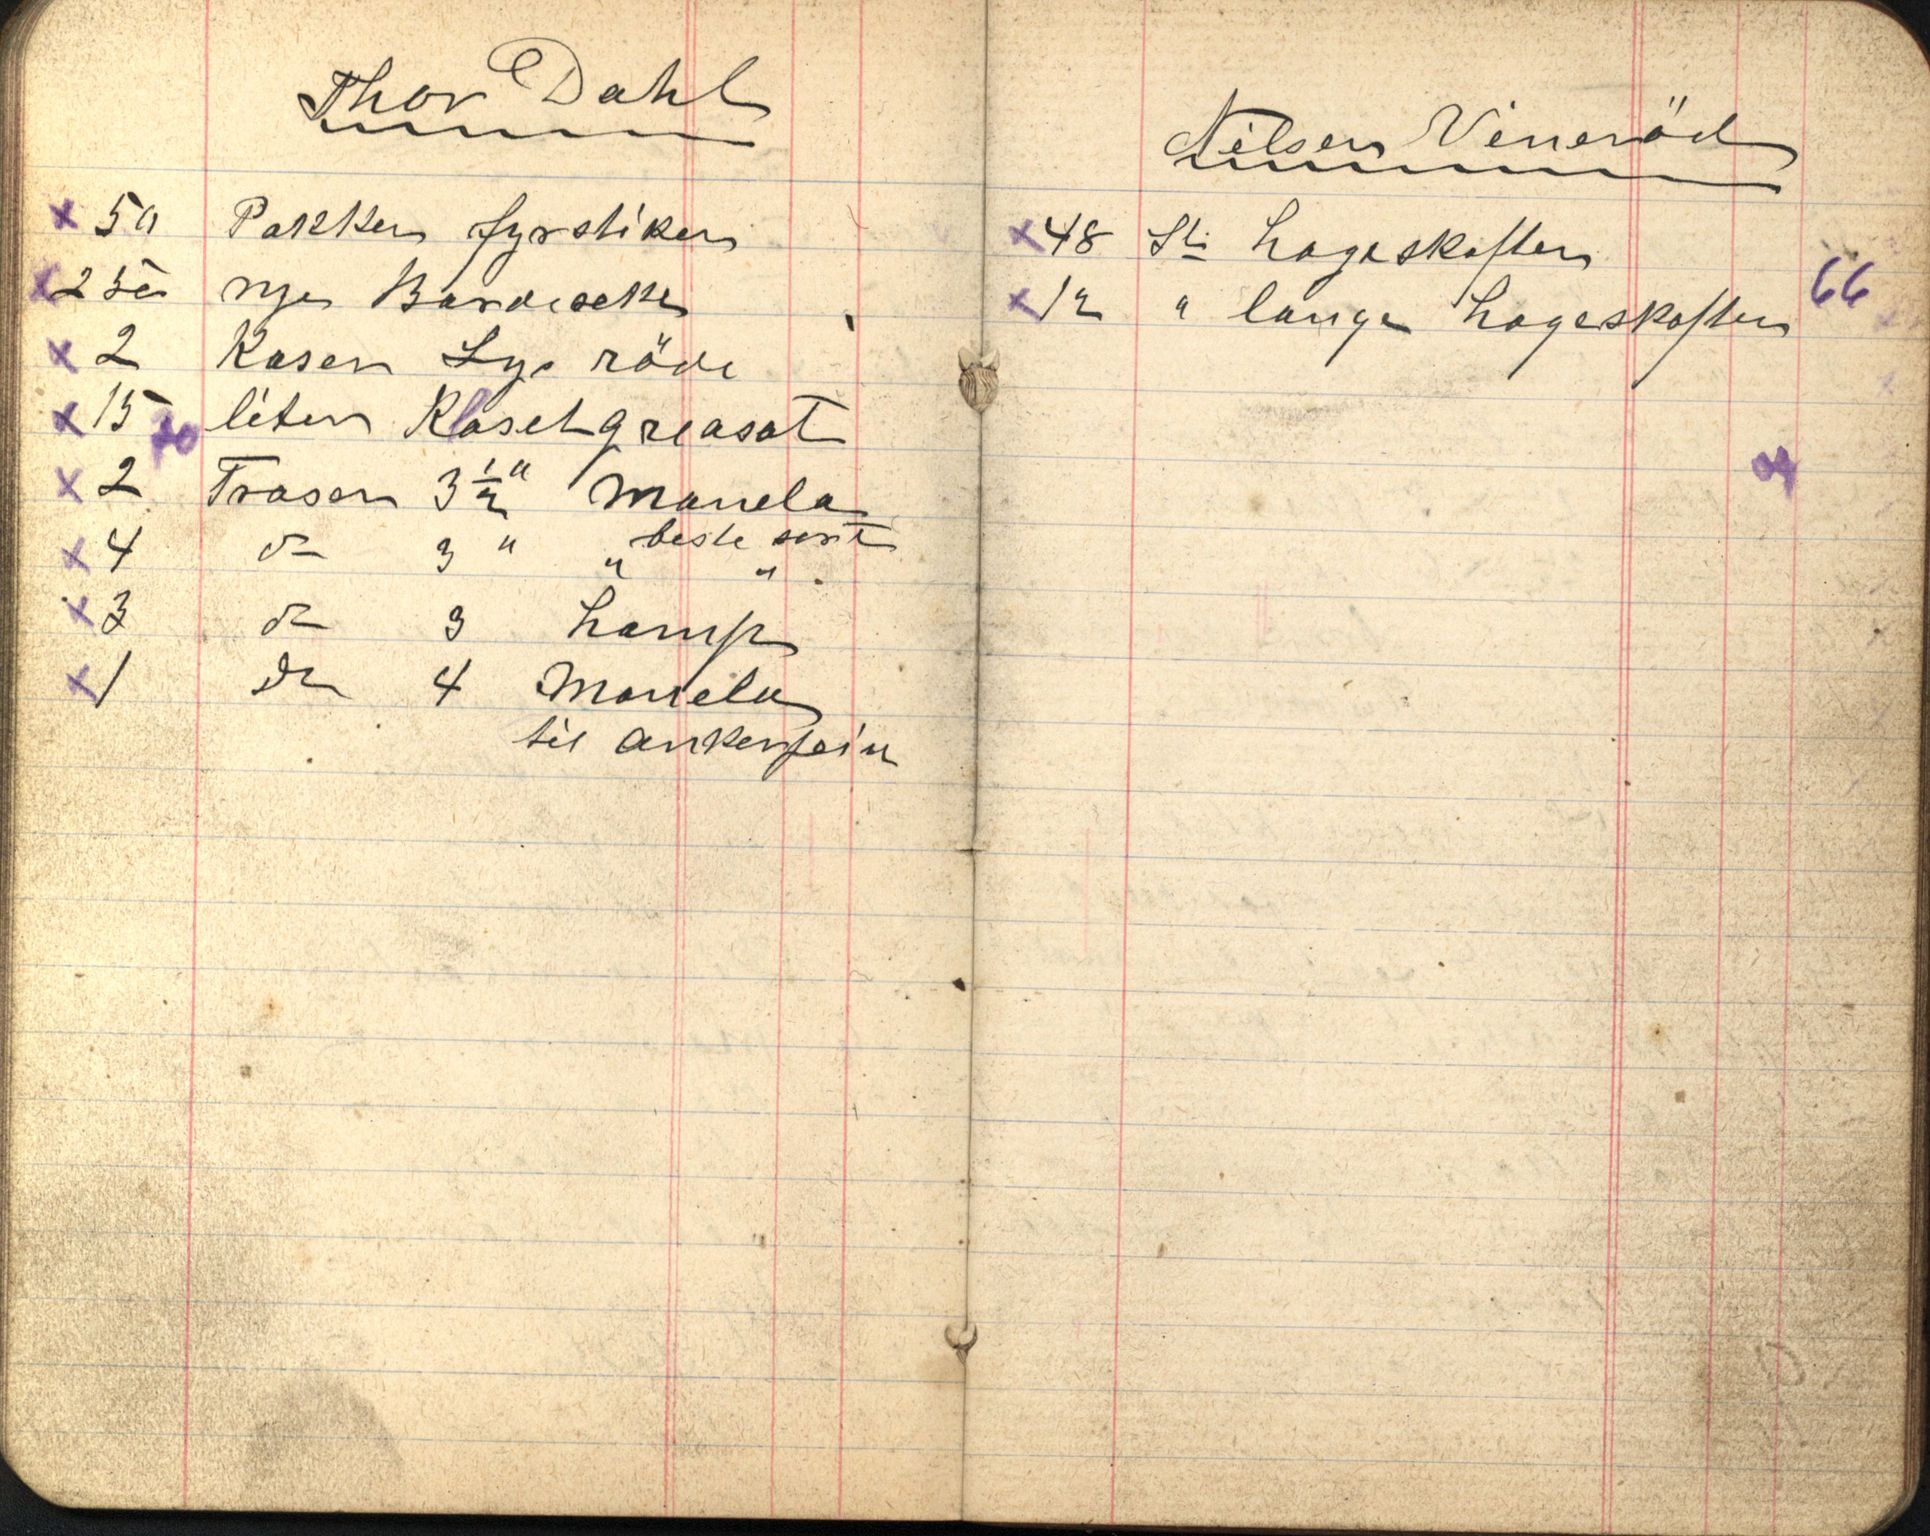 Thor Dahl
x 50 Pakker fyrstiker
x 250 nye Bardesekke
x 2 Kaser Lys röde
x 15 70 liter Klosetgreasot
x 2 Traser 3 1/2 " Manela
x 4 do 3 " " beste sort "
x 3 do 3 hamp
x 1 do 4 Manela
til ankerpein
Nilsen Vineröd
x 48 St: hageskafter
x 12 " lange hageskafter
66